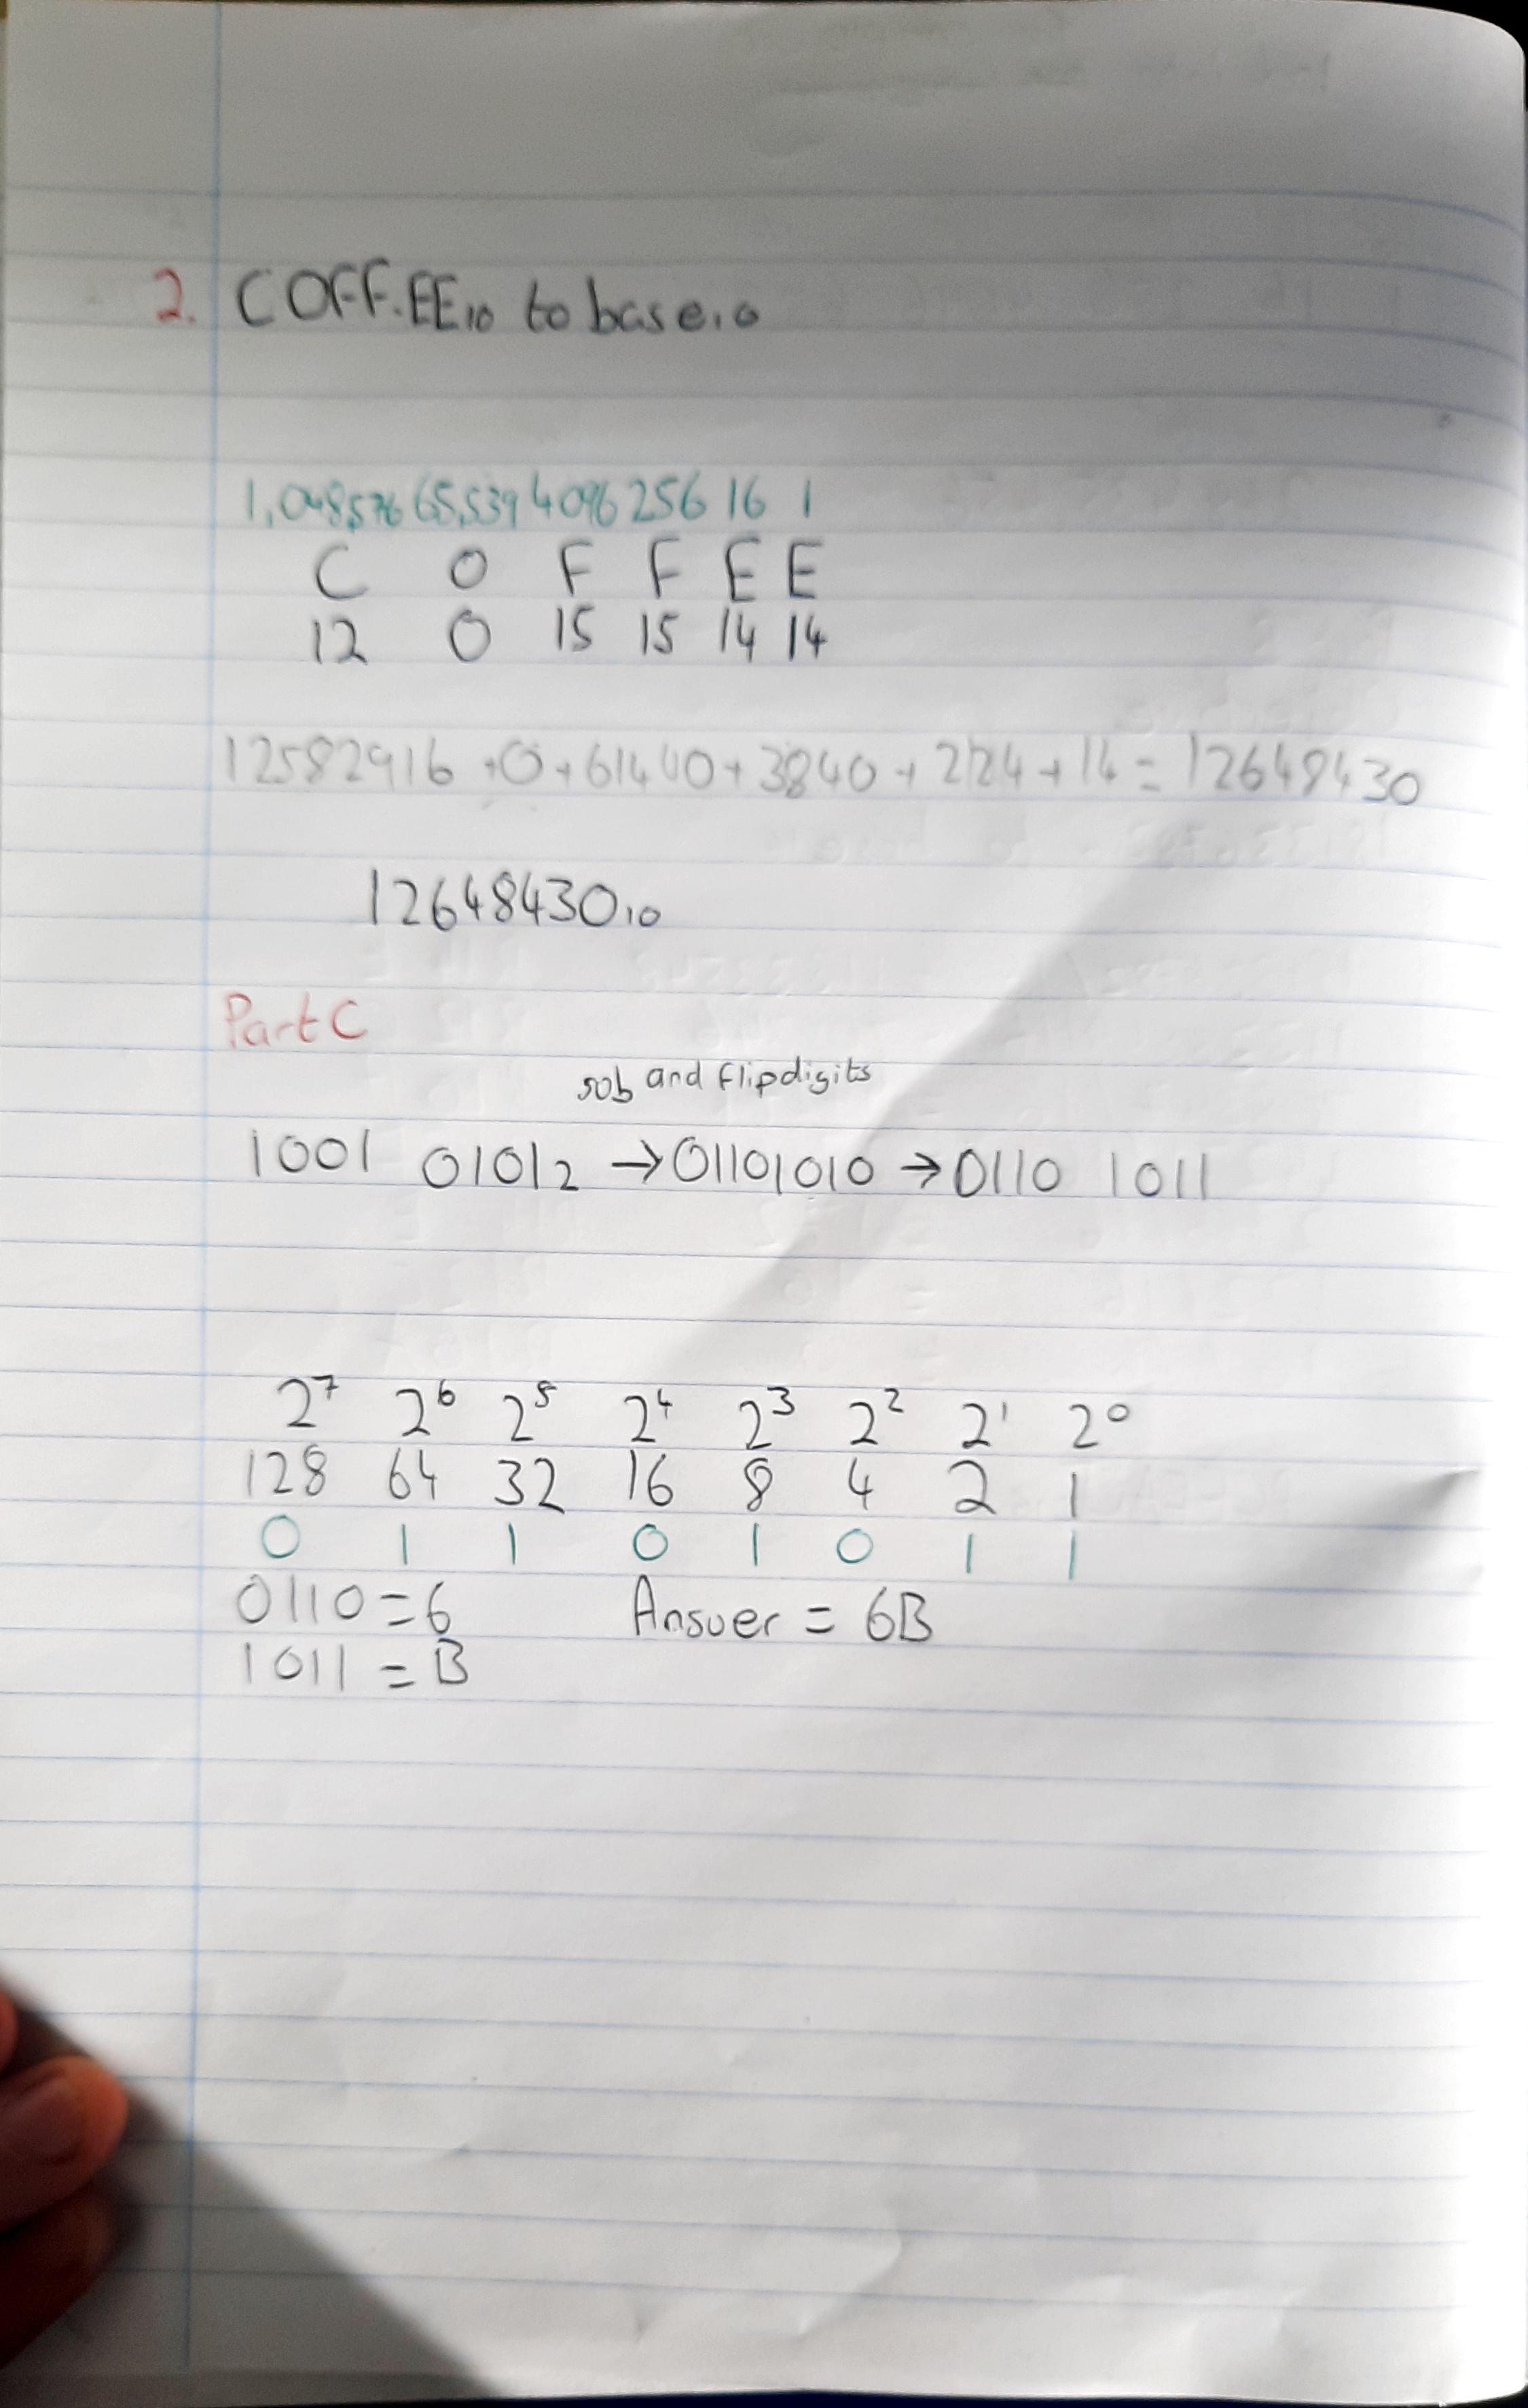 2. COFF.EE10 to base10
1,048,576 65,539 4096 256 16 1
C O F F E E
12 0 15 15 14 14
12582916 + 0 + 61440 + 3840 + 224 + 14 = 12648430
1264843010
Part C
sob and flip digits
1001 01012 → 01101010 → 0110 1011
2⁷ 2⁶ 2⁵ 2⁴ 2³ 2² 2¹ 2⁰
128 64 32 16 8 4 2 1
0 1 1 0 1 0 1 1
0110 = 6 Answer = 6B
1011 = B